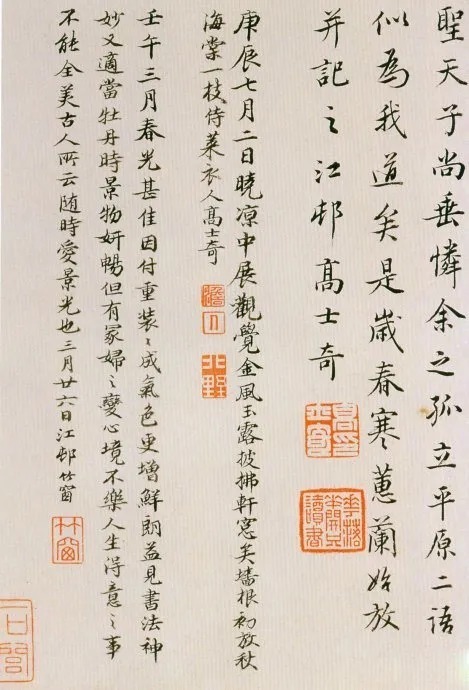 聖天子尚垂憐余之孤立平原二語
似為我道矣是歲春寒蕙蘭始放
并記之江邨高士奇
庚辰七月二日曉凉中展觀覺金風玉露披拂軒窓矣墻根初放秋
海棠一枝侍萊衣人高士奇
澹人
北墅
壬午三月春光甚佳因付重裝〻成氣色更增鮮朗益見書法神
妙又適當牡丹時景物妍暢但有冢婦之變心境不樂人生得意之事
不能全美古人所云随時愛景光也三月廿六日江邨竹窗
竹窗